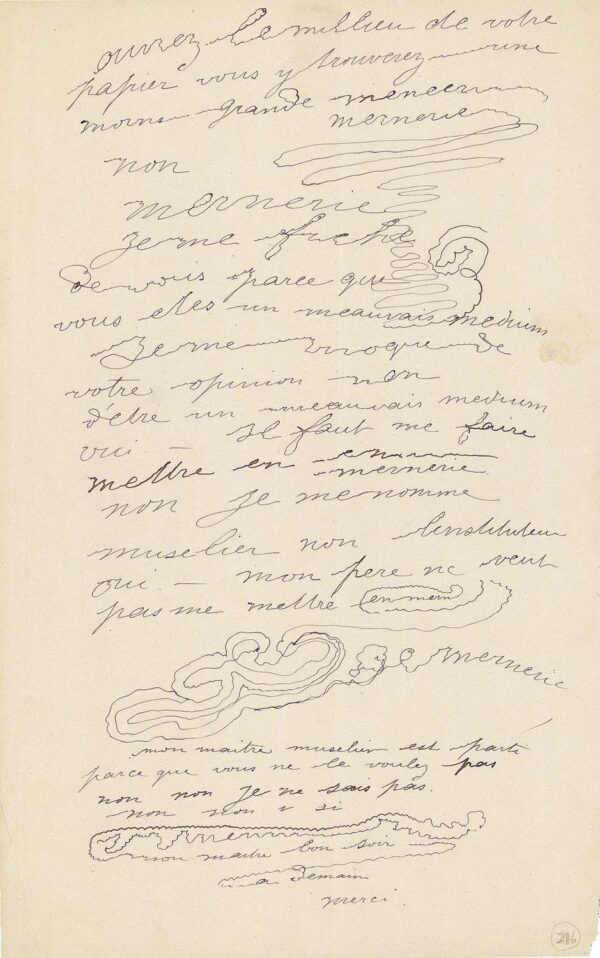 ouvrez le millieu de votre
papier vous y trouverez une
moins grande meneer
mernerie
non
mernerie
je me fiche
de vous parce que
vous etes un meauvais medium
je me moque de
votre opinion non
d'etre un meauvais medium
oui — il faut me faire
mettre en
mernerie
non je me nomme
muselier non l'instituteur
oui — mon pere ne veut
pas me mettre en mern
mernerie
mon maitre muselier est parti
parce que vous ne le voulez pas
non non je ne sais pas.
non non v si
mon maitre bon soir
a Demain
merci.
216